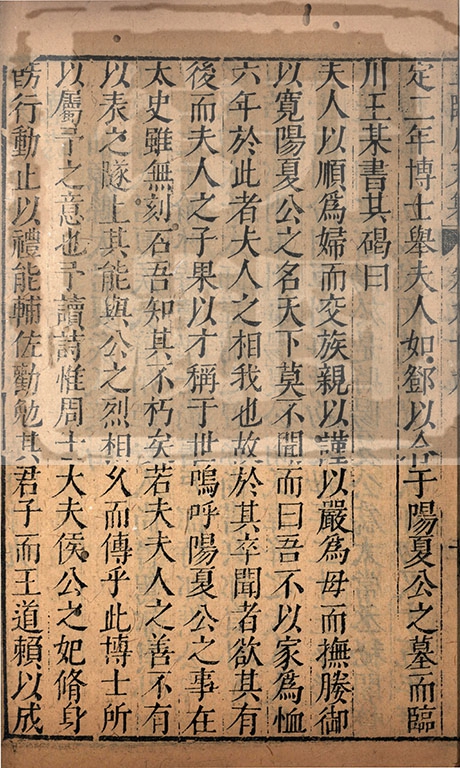 定二年博士舉夫人如鄧以合于陽夏公之墓而臨
川王某書其碣曰
夫人以順爲婦而交族親以謹以嚴爲母而撫媵御
以寬陽夏公之名天下莫不聞而曰吾不以家爲恤
六年於此者夫人之相我也故於其卒聞者欲其有
後而夫人之子果以才稱于世嗚呼陽夏公之事在
太史雖無刻石吾知其不朽矣若夫夫人之善不有
以表之隧上其能與公之烈相久而傳乎此博士所
以屬予之意也予讀詩惟周士大夫侯公之妃脩身
飭行動止以禮能輔佐勸勉其君子而王道賴以成